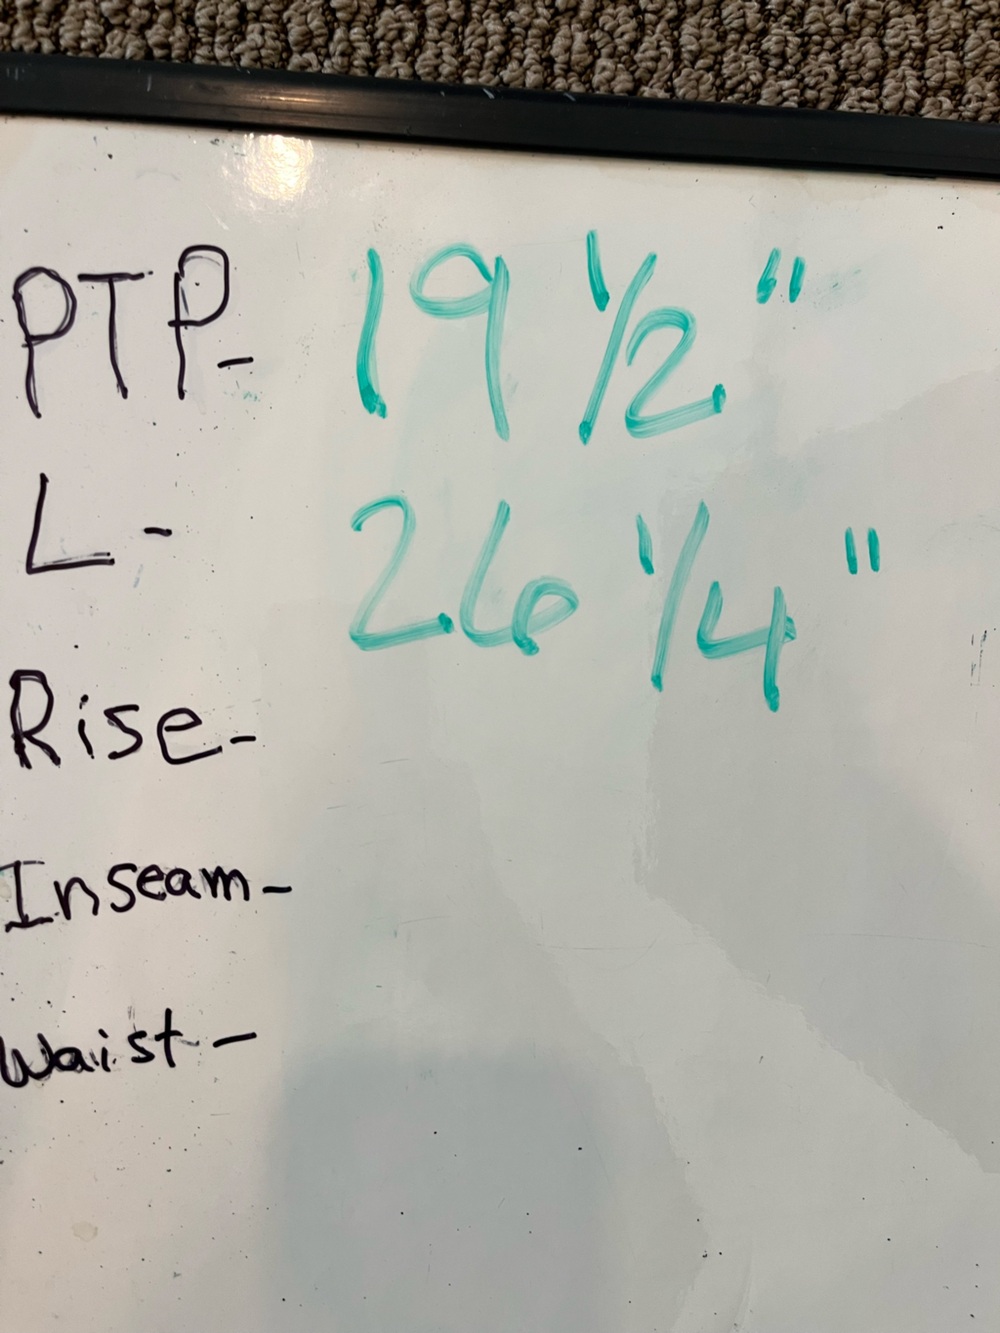 PTP- 19 1/2"
L- 26 1/4"
Rise-
Inseam-
Waist-